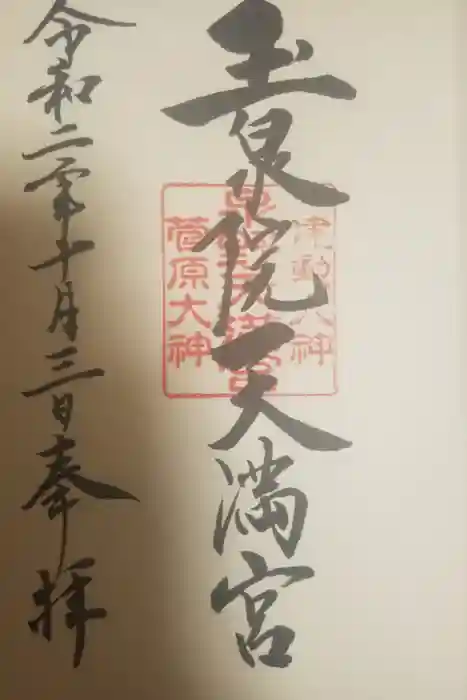 玉泉院天満宮
菅原大神
令和二年十月三日奉拝